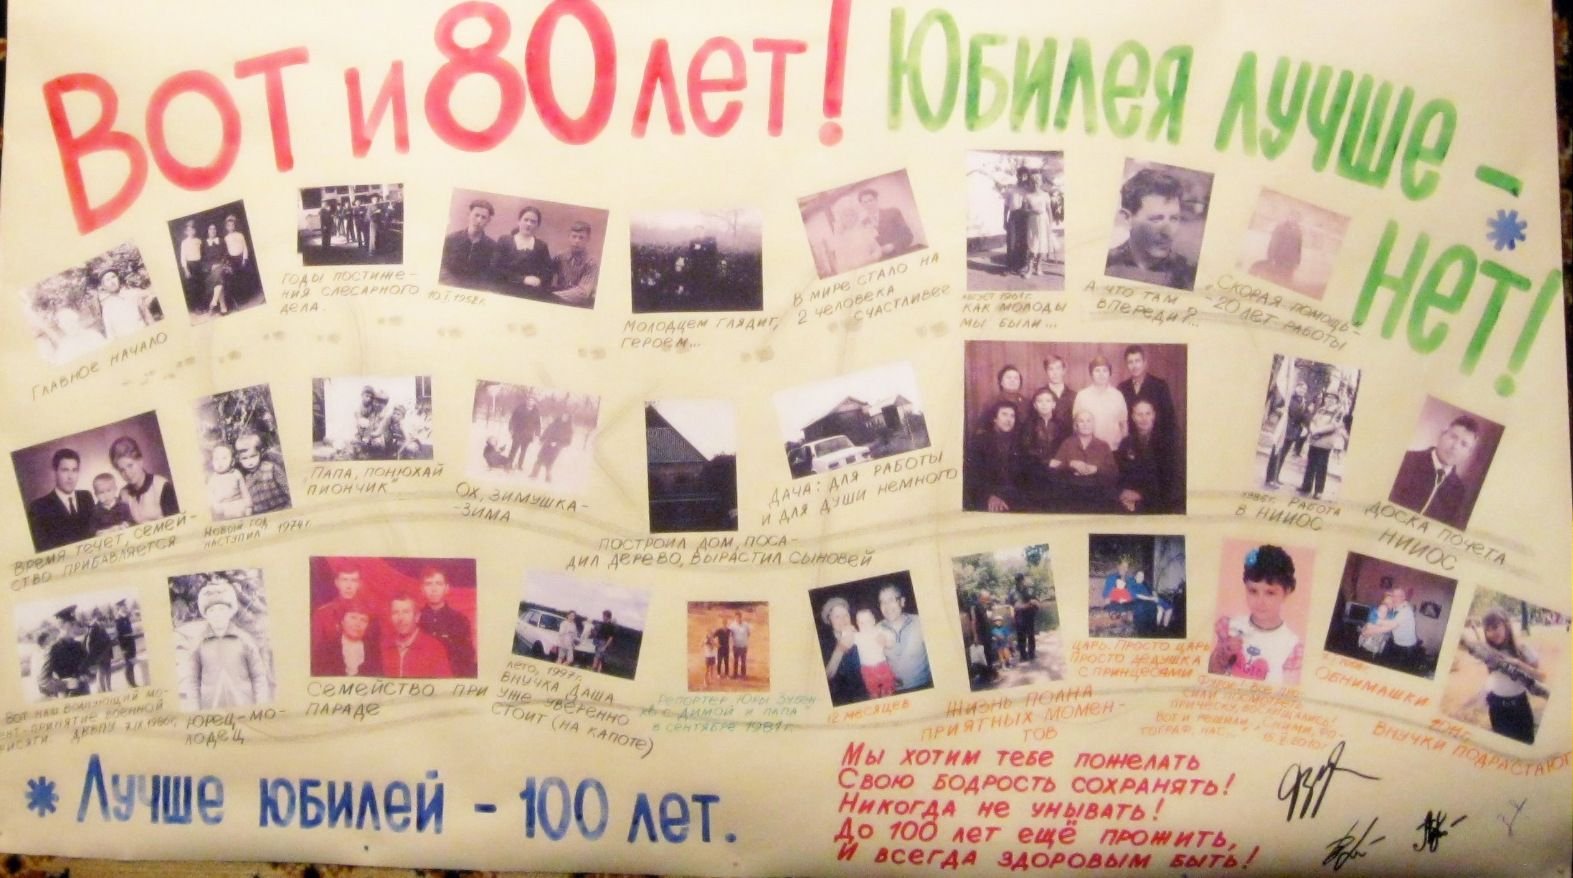 Вот и 80 лет! Юбилея лучше -
* нет!
Главное начало
Годы постиже-
ния слесарного
дела.
10.I.1958г.
Молодцем глядит,
героем...
В мире стало на
2 человека
счастливее
август 1961г.
Как молоды
мы были...
А что там
впереди?..
"Скорая помощь"-
-20 лет работы
Время течёт, семей-
ство прибавляется
Новый год
наступил 1974г.
"Папа, понюхай
пиончик"
Ох, зимушка-
-зима
Построил дом, поса-
дил дерево, вырастил сыновей
Дача: для работы
и для души немного
1986г. Работа
в НИИОС
Доска почёта
НИИОС
Вот наш волнующий мо-
мент-принятие военной
присяги.
Юрец-мо-
лодец
Семейство при
параде
Лето, 1997г.
Внучка Даша
уже уверенно
стоит (на капоте)
Репортёр Юры
с Димой и папа
в сентябре 1981г.
12 месяцев
Жизнь полна
приятных момен-
тов
Царь. Просто царь
Просто дедушка
с принцесами
причёску, восхищались!
Вот и решили, "Сними, фо-
тограф, нас..."
Обнимашки
Внучки подрастают
* Лучше юбилей - 100 лет.
Мы хотим тебе пожелать
Свою бодрость сохранять!
Никогда не унывать!
До 100 лет ещё прожить,
И всегда здоровым быть!